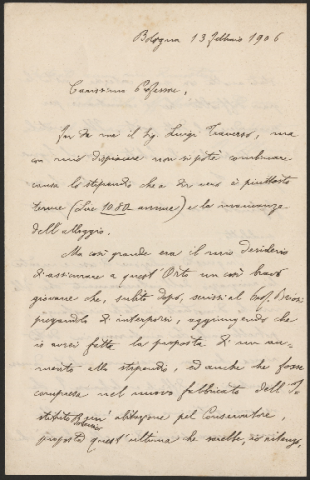 Bologna 13 febbraio 1906
Carissimo Professore,
Fu da me il Sig. Luigi Traverso, ma
con mio dispiacere non si potè combinare
causa lo stipendio che a dir vero è piuttosto
tenue (lire 1080 annue) e la mancanza
dell'alloggio.
Ma così grande era il mio desiderio
di assicurare a quest'Orto un così bravo
giovane che, subito dopo, scrissi al Prof.
pregandolo di interporsi, aggiungendo che
io avrei fatta la proposta di un au-
mento allo stipendio, ed anche che fosse
compresa nel nuovo fabbricato dell'I-
stituto Botanico un'abitazione pel Conservatore,
proposta quest'ultima che sarebbe, io ritengo,